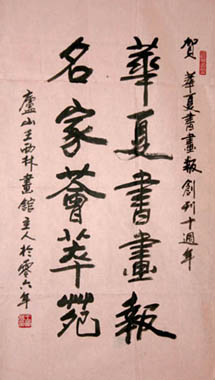 賀華夏書畫報創刊十週年
華夏書畫報
名家薈萃苑
廬山王西林畫館主人於零六年